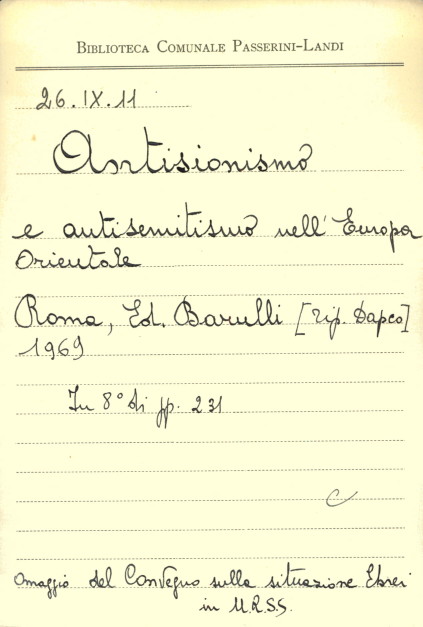 BIBLIOTECA COMUNALE PASSERINI-LANDI
26.IX.11
Antisionismo
e antisemitismo nell'Europa
Orientale
Roma, Ed. Barulli [Tip. Dapco]
1969
In 8° di pp. 231
C
Omaggio del Convegno sulla situazione Ebrei
in U.R.S.S.